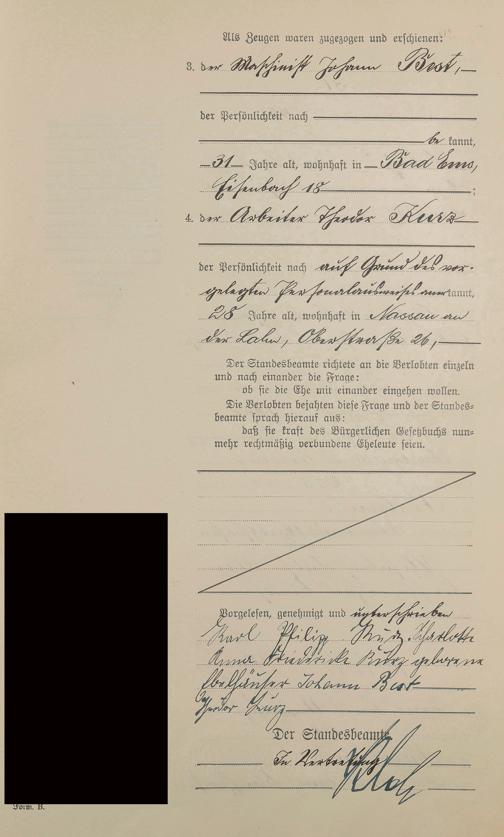 Als Zeugen waren zugezogen und erschienen:
3. der Maschinist Johann Best,
der Persönlichkeit nach
be kannt,
31 Jahre alt, wohnhaft in Bad Ems,
Eisenbach 18 ;
4. der Arbeiter Theodor Kurz
der Persönlichkeit nach auf Grund des vor-
gelegten Personalausweises anerkannt,
28 Jahre alt, wohnhaft in Nassau an
der Lahn, Oberstraße 26,
Der Standesbeamte richtete an die Verlobten einzeln
und nach einander die Frage:
ob sie die Ehe mit einander eingehen wollen.
Die Verlobten bejahten diese Frage und der Standes-
beamte sprach hierauf aus:
daß sie kraft des Bürgerlichen Gesetzbuchs nun-
mehr rechtmäßig verbundene Eheleute seien.
Vorgelesen, genehmigt und unterschrieben
Karl Philipp Kurz. Charlotte
Anna Friedericke Kurz geborene
Johann Best
Theodor Kurz
Der Standesbeamte
In Vertretung
Form. B.